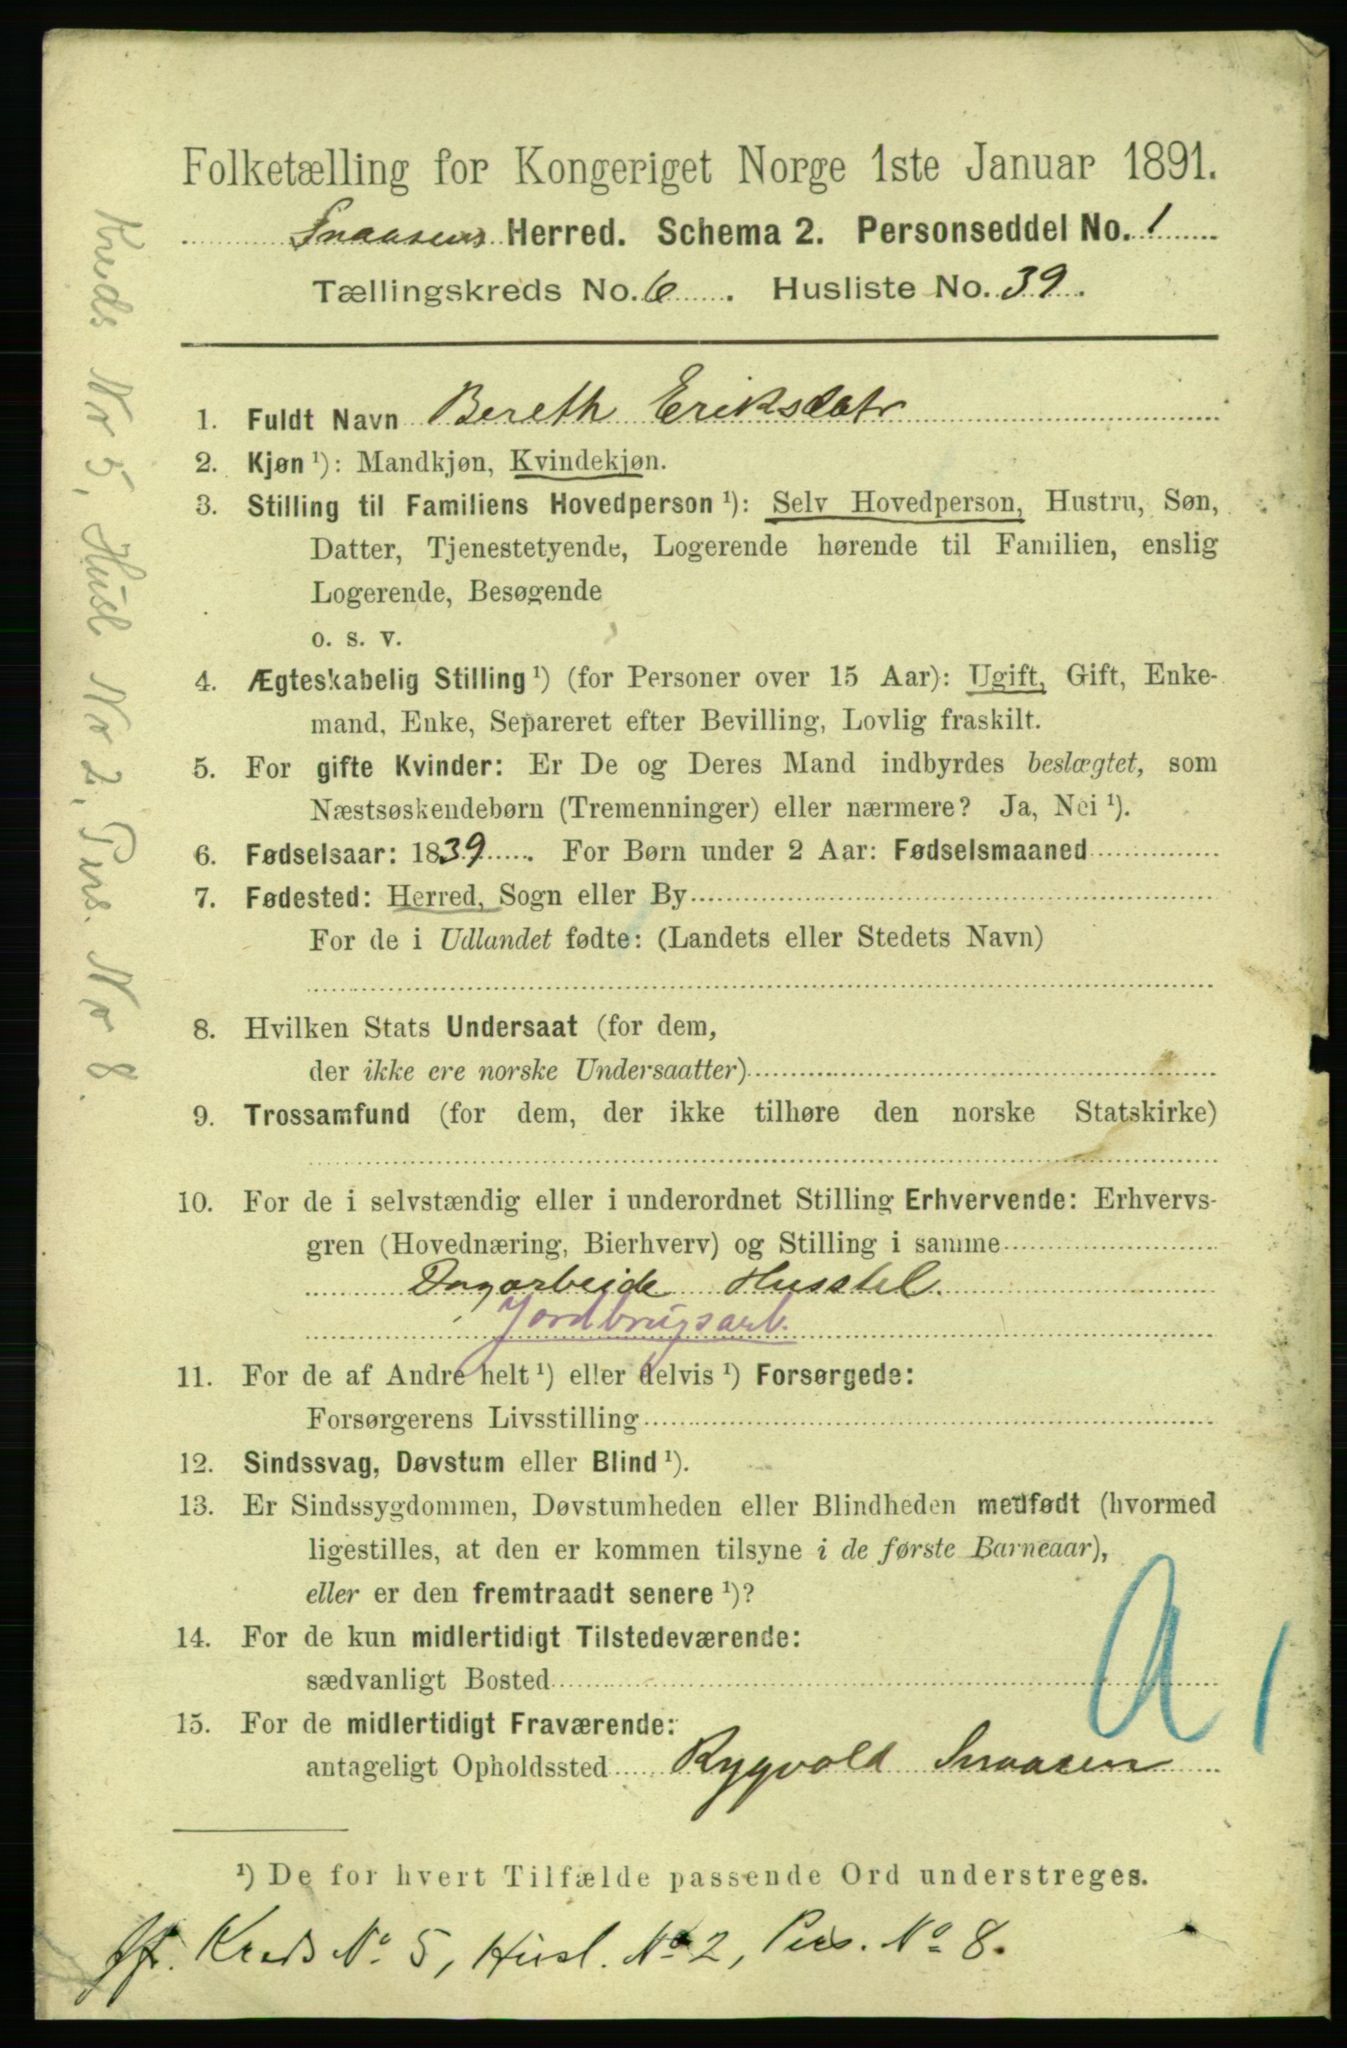 Folketælling for Kongeriget Norge 1ste Januar 1891.
Snaasens Herred. Schema 2. Personseddel No. 1
Tællingskreds No. 6. Husliste No. 39.
1. Fuldt Navn Bereth Eriksdatr
2. Kjøn ¹): Mandkjøn, Kvindekjøn.
3. Stilling til Familiens Hovedperson ¹): Selv Hovedperson, Hustru, Søn,
Datter, Tjenestetyende, Logerende hørende til Familien, enslig
Logerende, Besøgende
o. s. v.
4. Ægteskabelig Stilling ¹) (for Personer over 15 Aar): Ugift, Gift, Enke-
mand, Enke, Separeret efter Bevilling, Lovlig fraskilt.
5. For gifte Kvinder: Er De og Deres Mand indbyrdes beslægtet, som
Næstsøskendebørn (Tremenninger) eller nærmere? Ja, Nei ¹).
6. Fødselsaar: 1839. For Børn under 2 Aar: Fødselsmaaned
7. Fødested: Herred, Sogn eller By
For de i Udlandet fødte: (Landets eller Stedets Navn)
8. Hvilken Stats Undersaat (for dem,
der ikke ere norske Undersaatter)
9. Trossamfund (for dem, der ikke tilhøre den norske Statskirke)
10. For de i selvstændig eller i underordnet Stilling Erhvervende: Erhvervs-
gren (Hovednæring, Bierhverv) og Stilling i samme
Dagarbeide Husstel.
Jordbrugsarb.
11. For de af Andre helt ¹) eller delvis ¹) Forsørgede:
Forsørgerens Livsstilling
12. Sindssvag, Døvstum eller Blind ¹).
13. Er Sindssygdommen, Døvstumheden eller Blindheden medfødt (hvormed
ligestilles, at den er kommen tilsyne i de første Barneaar),
eller er den fremtraadt senere ¹)?
14. For de kun midlertidigt Tilstedeværende:
sædvanligt Bosted
15. For de midlertidigt Fraværende:
antageligt Opholdssted Rygvold Snaasen
A 1
¹) De for hvert Tilfælde passende Ord understreges.
jfr. Kreds No. 5, Husl. No 2, Pers. No 8.
Kreds No 5, Husl No 2, Pers. No 8.